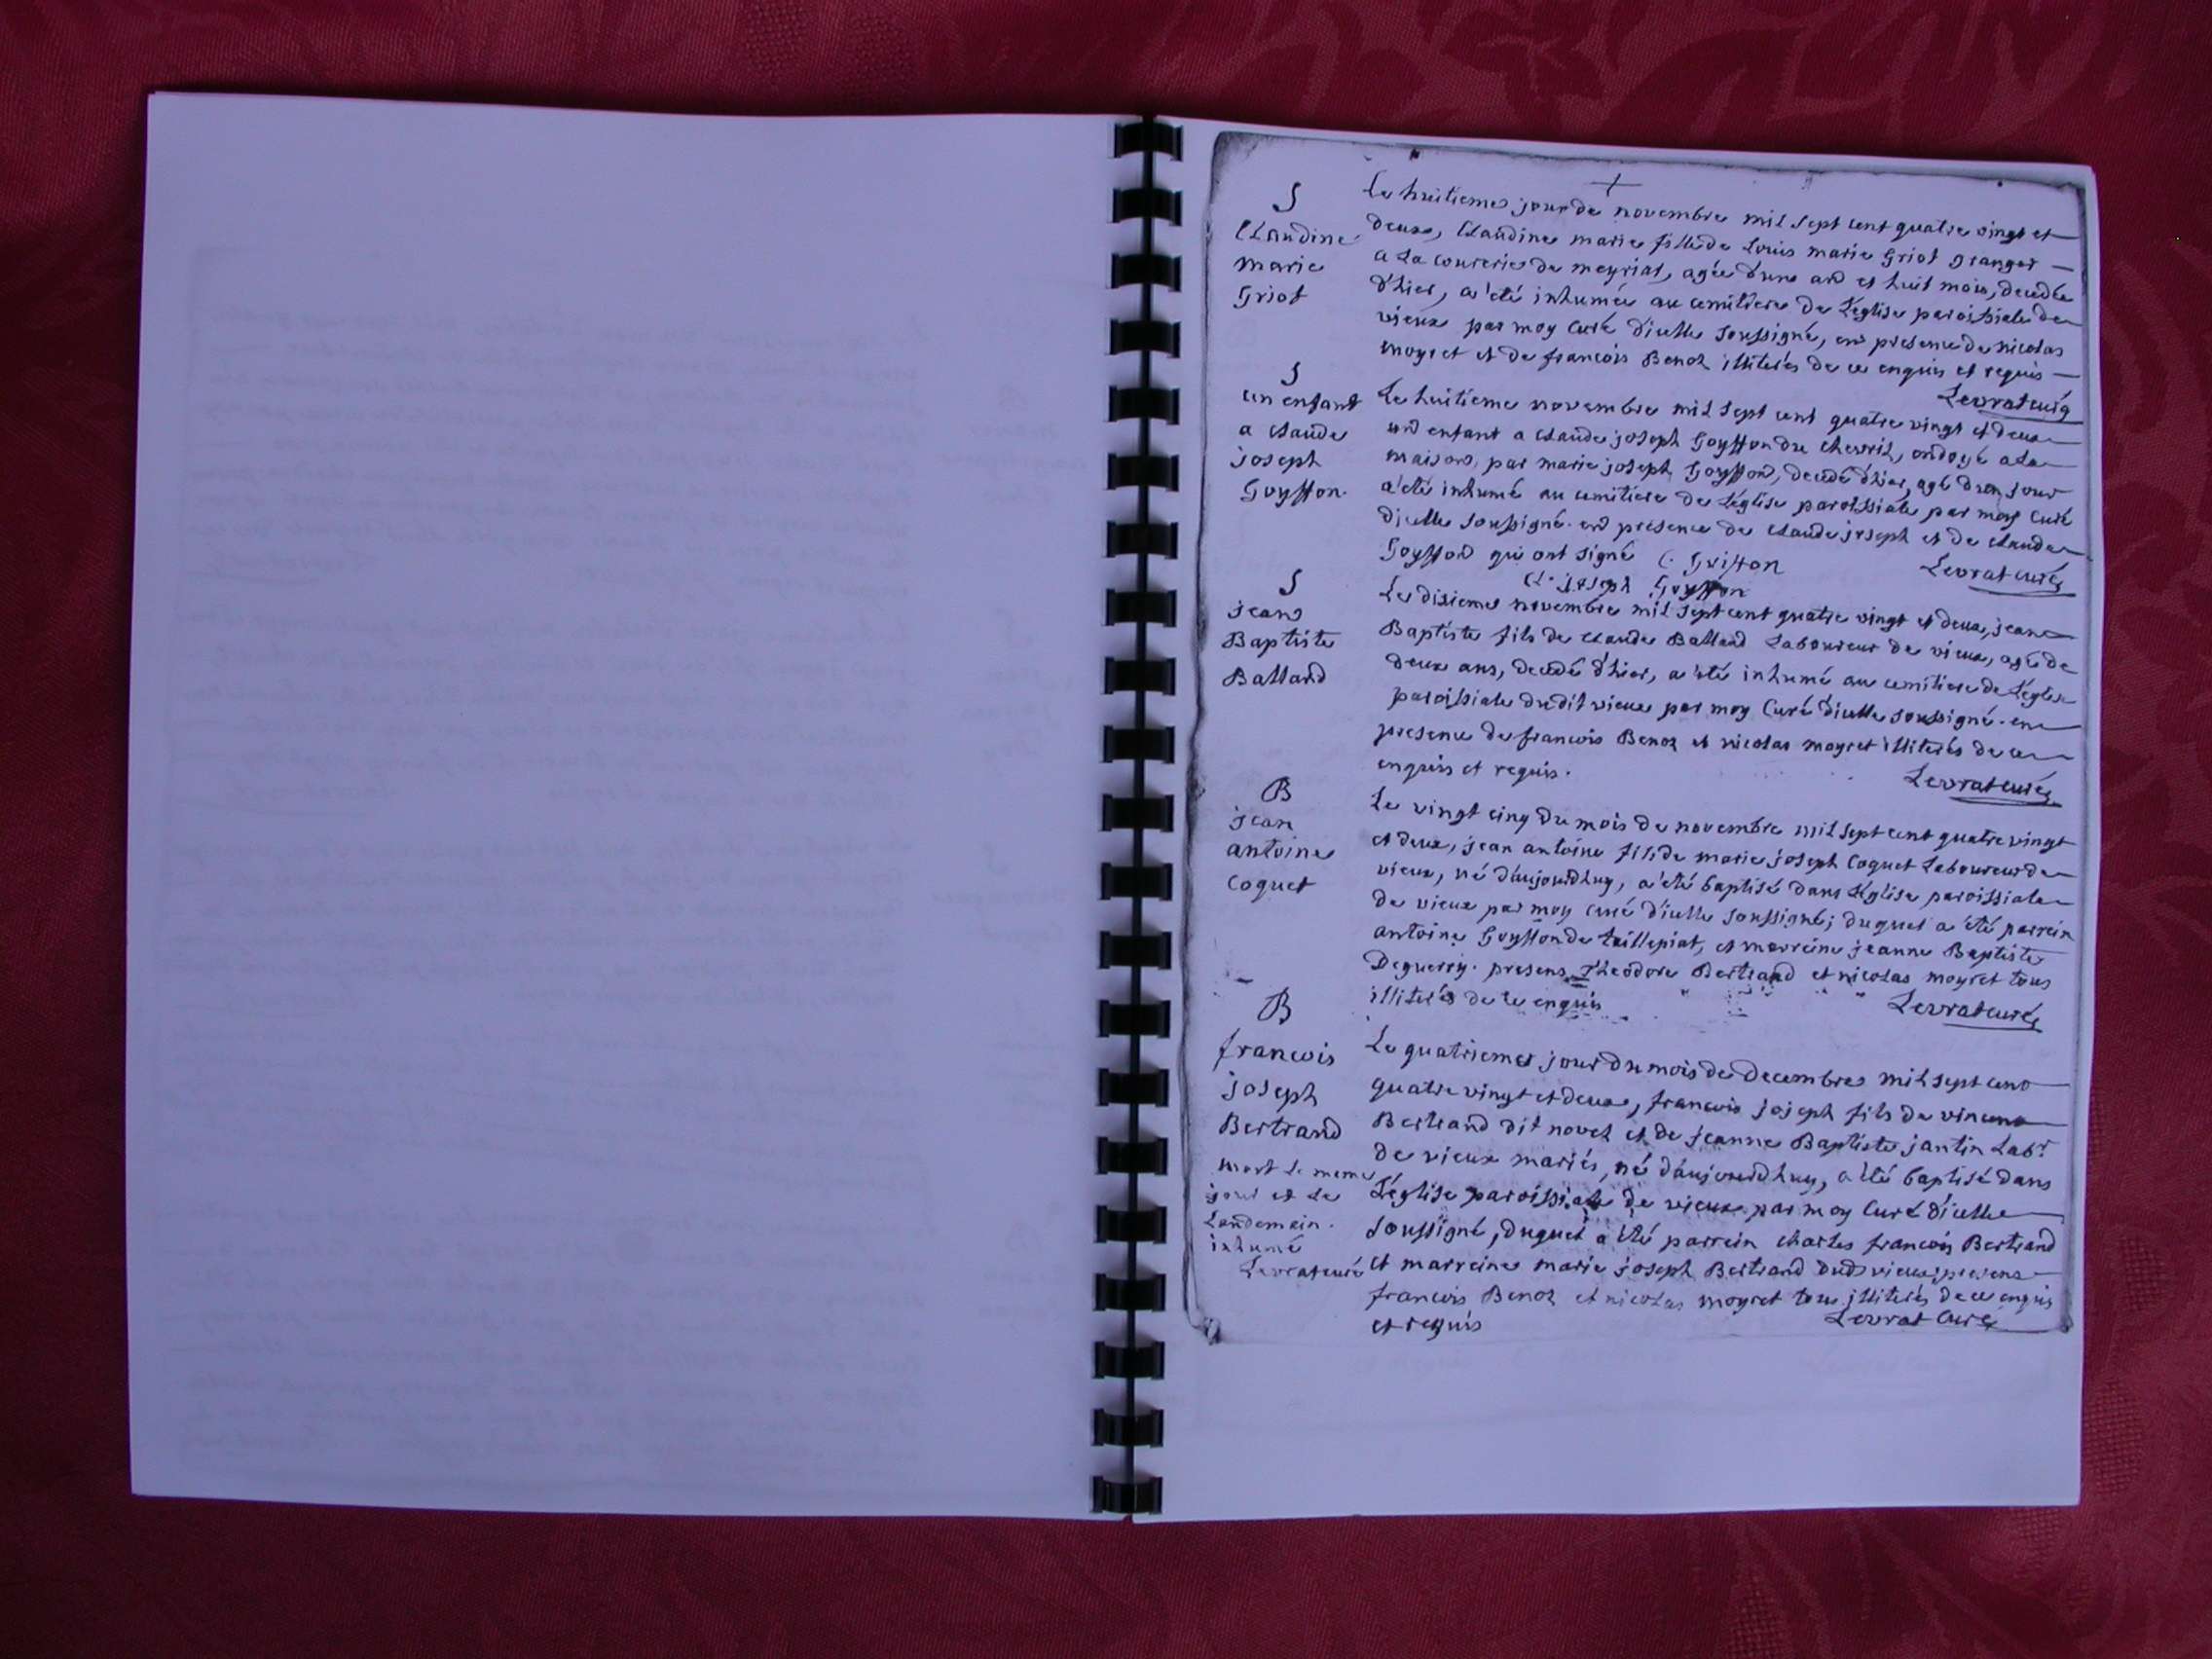 S
Claudine
marie
Griot
Le huitieme jour de novembre mil sept cent quatre vingt et
deux, Claudine marie fille de Louis marie Griot granger
a La courerie de meyriat, agée d'une an et huit mois, decedée
d'hier, a été inhumée au cemitiere de L'eglise paroissiale de
vieux par moy Curé d'icelle soussigné, en presence de nicolas
moyret et de francois Benoz illiterés de ce enquis et requis
Levrat curé
S
un enfant
a claude
joseph
Goyffon
Le huitieme novembre mil sept cent quatre vingt et deux
un enfant a claude joseph Goyffon du chevril, ondoyé a La
maison, par marie joseph Goyffon, decedé d'hier, agé d'un jour
a été inhumé au cemitiere de L'église paroissiale par moy Curé
d'icelle soussigné en presence de claude joseph et de claude
Goyffon qui ont signé C. Goiffon
Levrat curé
Cl. joseph Goyffon
S
jean
Baptiste
Balland
Le dixieme novembre mil sept cent quatre vingt et deux, jean
Baptiste fils de claude Balland Laboureur de vieux, agé de
deux ans, decedé d'hier, a été inhumé au cemitiere de L'église
paroissiale dudit vieux par moy Curé d'icelle soussigné en
presence de francois Benoz et nicolas moyret illiterés de ce
enquis et requis.
Levrat curé
B
jean
antoine
Coquet
Le vingt cinq du mois de novembre mil sept cent quatre vingt
et deux, jean antoine fils de marie joseph Coquet Laboureur de
vieux, né d'aujourdhuy, a été baptisé dans L'église paroissiale
de vieux par moy curé d'icelle soussigné; duquel a été parrein
antoine Goyffon de taillepiat, et marreine jeanne Baptiste
Deguerry. presens Theodore Bertrand et nicolas moyret tous
illiterés de ce enquis
Levrat curé
B
francois
joseph
Bertrand
mort le meme
jour et Le
Landemain
inhumé
Levrat curé
Le quatrieme jour du mois de Decembre mil sept cent
quatre vingt et deux, francois joseph fils de vincent
Bertrand dit novel et de jeanne Baptiste jantin Labr
de vieux mariés, né d'aujourdhuy, a été baptisé dans
L'église paroissiale de vieux par moy Curé d'icelle
soussigné, duquel a été parrein charles francois Bertrand
et marreine marie joseph Bertrand dud vieux, presens
francois Benoz et nicolas moyret tous illiterés de ce enquis
et requis
Levrat Curé